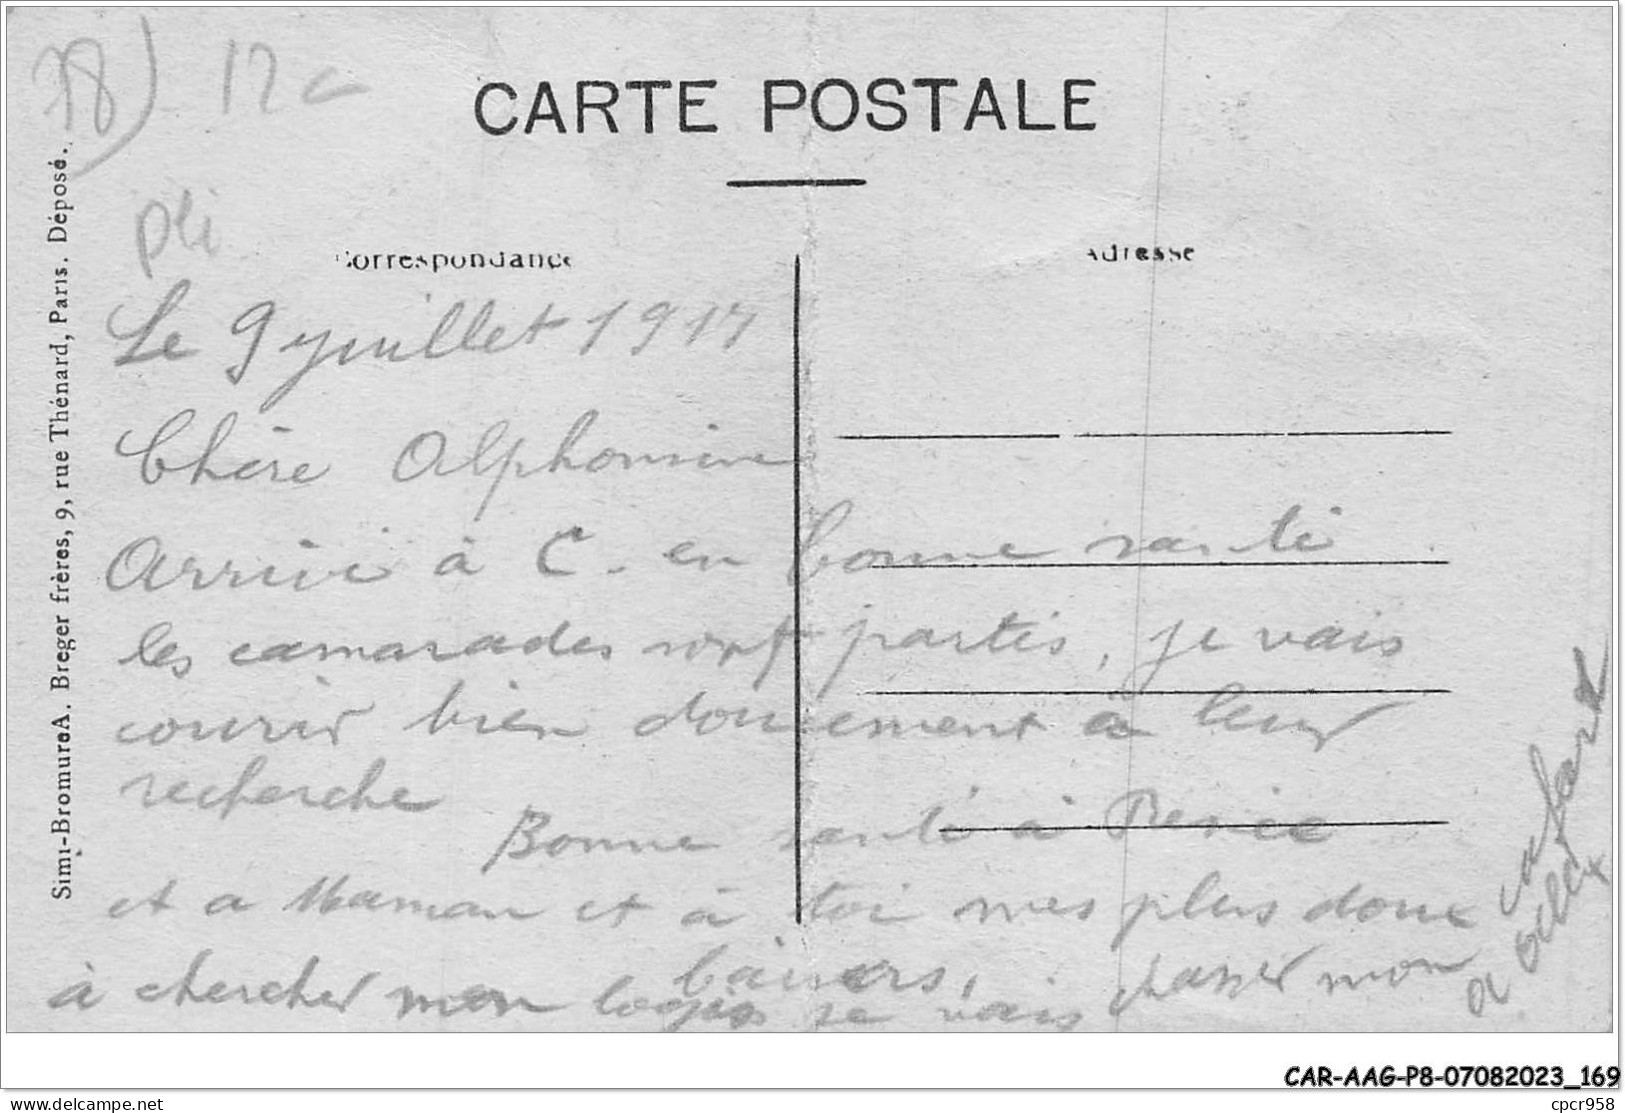 78) 12€
CARTE POSTALE
pli
Correspondance
Adresse
Simi-Bromure A. Breger frères, 9, rue Thénard, Paris. Déposé.
Le 9 yuillet 1917
Chère Alphonsine
Arrivé à C. en bonne santé
les camarades sont partis, je vais
courir bien doucement à leur
recherche
Bonne santé à
et a Maman et à toi mes plus doux
baisers,
à chercher mon logis je vais chasser mon
CAR-AAG-P8-07082023_169
www.delcampe.net
cpcr958